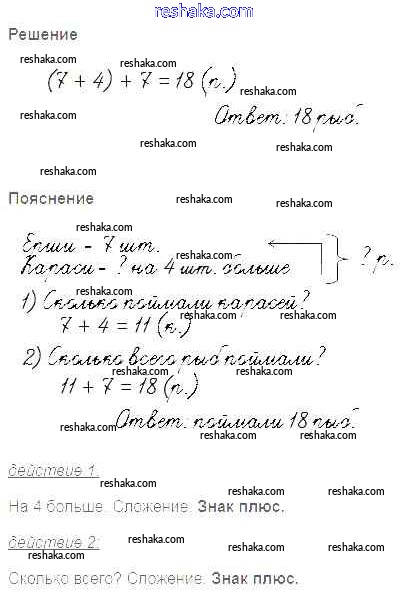 reshaka.com
Решение
reshaka.com reshaka.com
(7 + 4) + 7 = 18 (р.)
reshaka.com
reshaka.com
Ответ: 18 рыб.
reshaka.com reshaka.com
reshaka.com
Пояснение reshaka.com reshaka.com
reshaka.com
Ерши - 7 шт.
reshaka.com
Караси - ? на 4 шт. больше
? р.
reshaka.com
1) Сколько поймали карасей?
7 + 4 = 11 (к.) reshaka.com reshaka.com
2) Сколько всего рыб поймали?
reshaka.com
11 + 7 = 18 (р.)
reshaka.com reshaka.com
Ответ: поймали 18 рыб.
reshaka.com reshaka.com reshaka.com
действие 1:
reshaka.com reshaka.com reshaka.com
На 4 больше. Сложение. Знак плюс.
действие 2: reshaka.com
reshaka.com reshaka.com reshaka.com
Сколько всего? Сложение. Знак плюс.